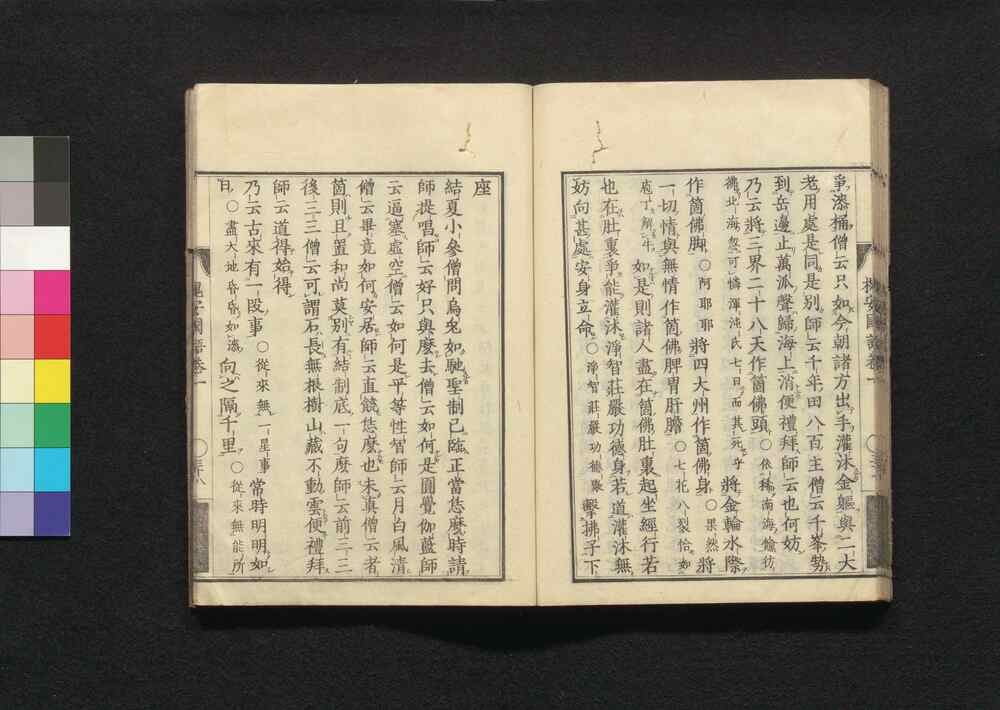 爭漆桶僧云只如今朝諸方出手灌沐金軀與二大
老用處是同是別師云千年田八百主僧云千峯勢
到岳邊止萬派聲歸海上消便禮拜師云也何妨
乃云將三界二十八天作箇佛頭○依稀南海髣彿
佛北海忽可憐渾沌氏七日而其死乎 將金輪水際
作箇佛脚○阿耶耶 將四大州作箇佛身○果然 將
一切情與無情作箇佛脾胃肝膽○七花八裂恰如
庖丁解牛 如是則諸人盡在箇佛肚裏起坐經行若
也在肚裏爭能灌沐淨智莊嚴功德身若道灌沐無
妨向甚處安身立命○淨智莊嚴功德聚 擊拂子下
座
結夏小參僧問烏兔如馳聖制已臨正當恁麽時請
師提唱師云好只與麽去僧云如何是圓覺伽藍師
云逼塞虛空僧云如何是平等性智師云月白風清
僧云畢竟如何安居師云直饒恁麽也未眞僧云者
箇則且置和尚莫別有結制底一句麽師云前三三
後三三僧云可謂石長無根樹山藏不動雲便禮拜
師云道得始得
乃云古來有一段事○從來無一星事 常時明明如
日○盡大地昏昏如漆 向之隔千里○從來無能所
槐安國語卷一